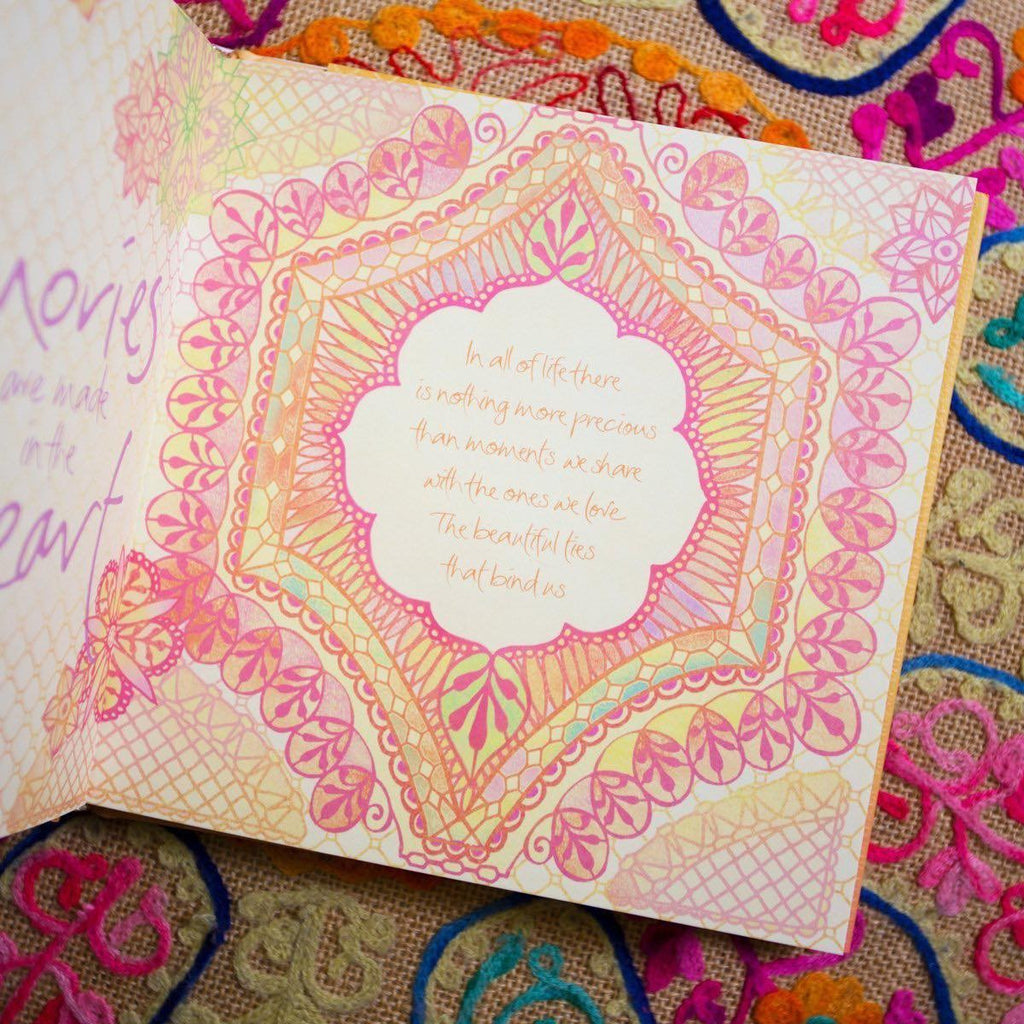 mories
are made
in the
eart
In all of life there
is nothing more precious
than moments we share
with the ones we love
The beautiful ties
that bind us